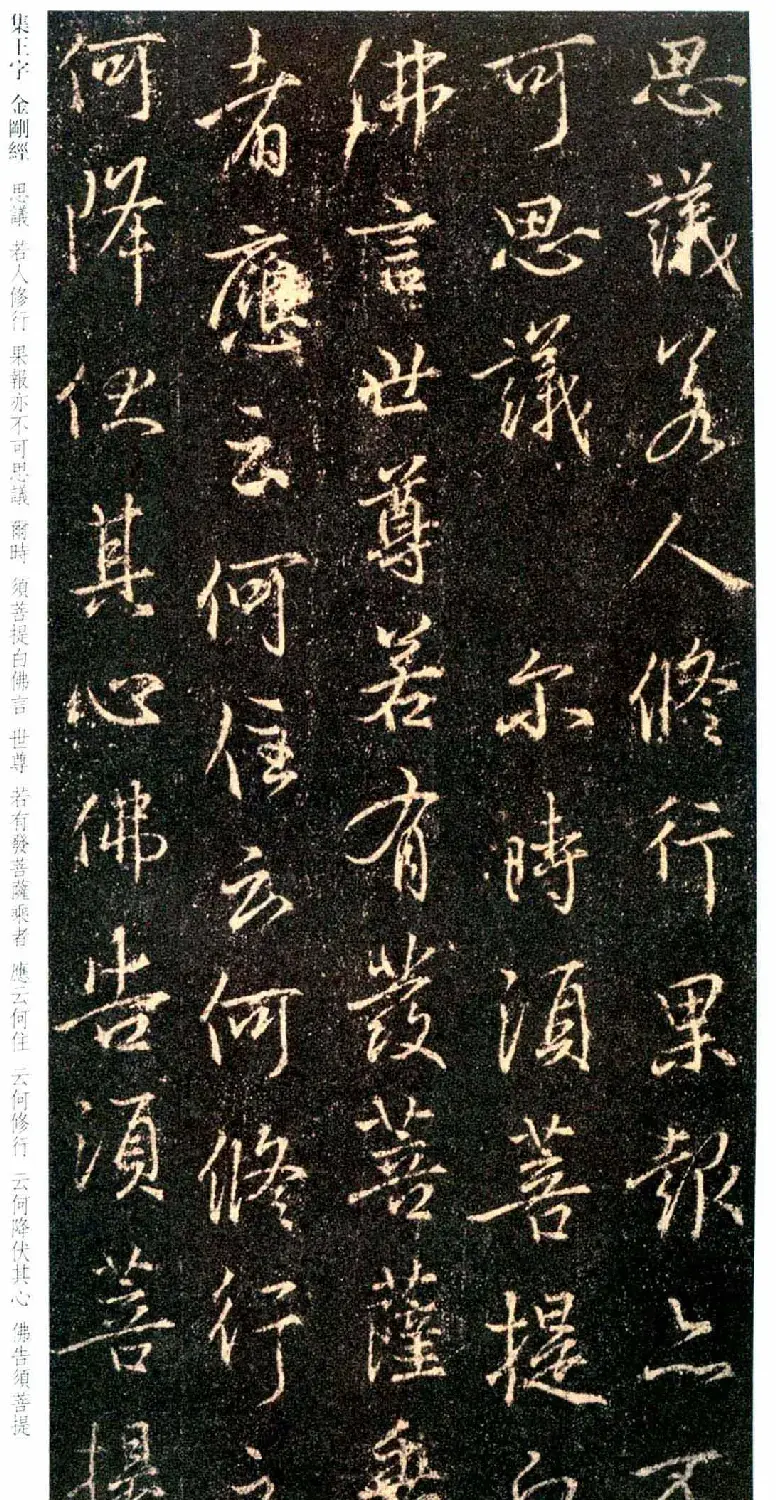 思議若人修行果報亦不
可思議 尔時須菩提白
佛言世尊若有發菩薩乘
者應云何住云何修行云
何降伏其心佛告須菩提
集王字 金剛經 思議 若人修行 果報亦不可思議 爾時 須菩提白佛言 世尊 若有發菩薩乘者 應云何住 云何修行 云何降伏其心 佛告須菩提